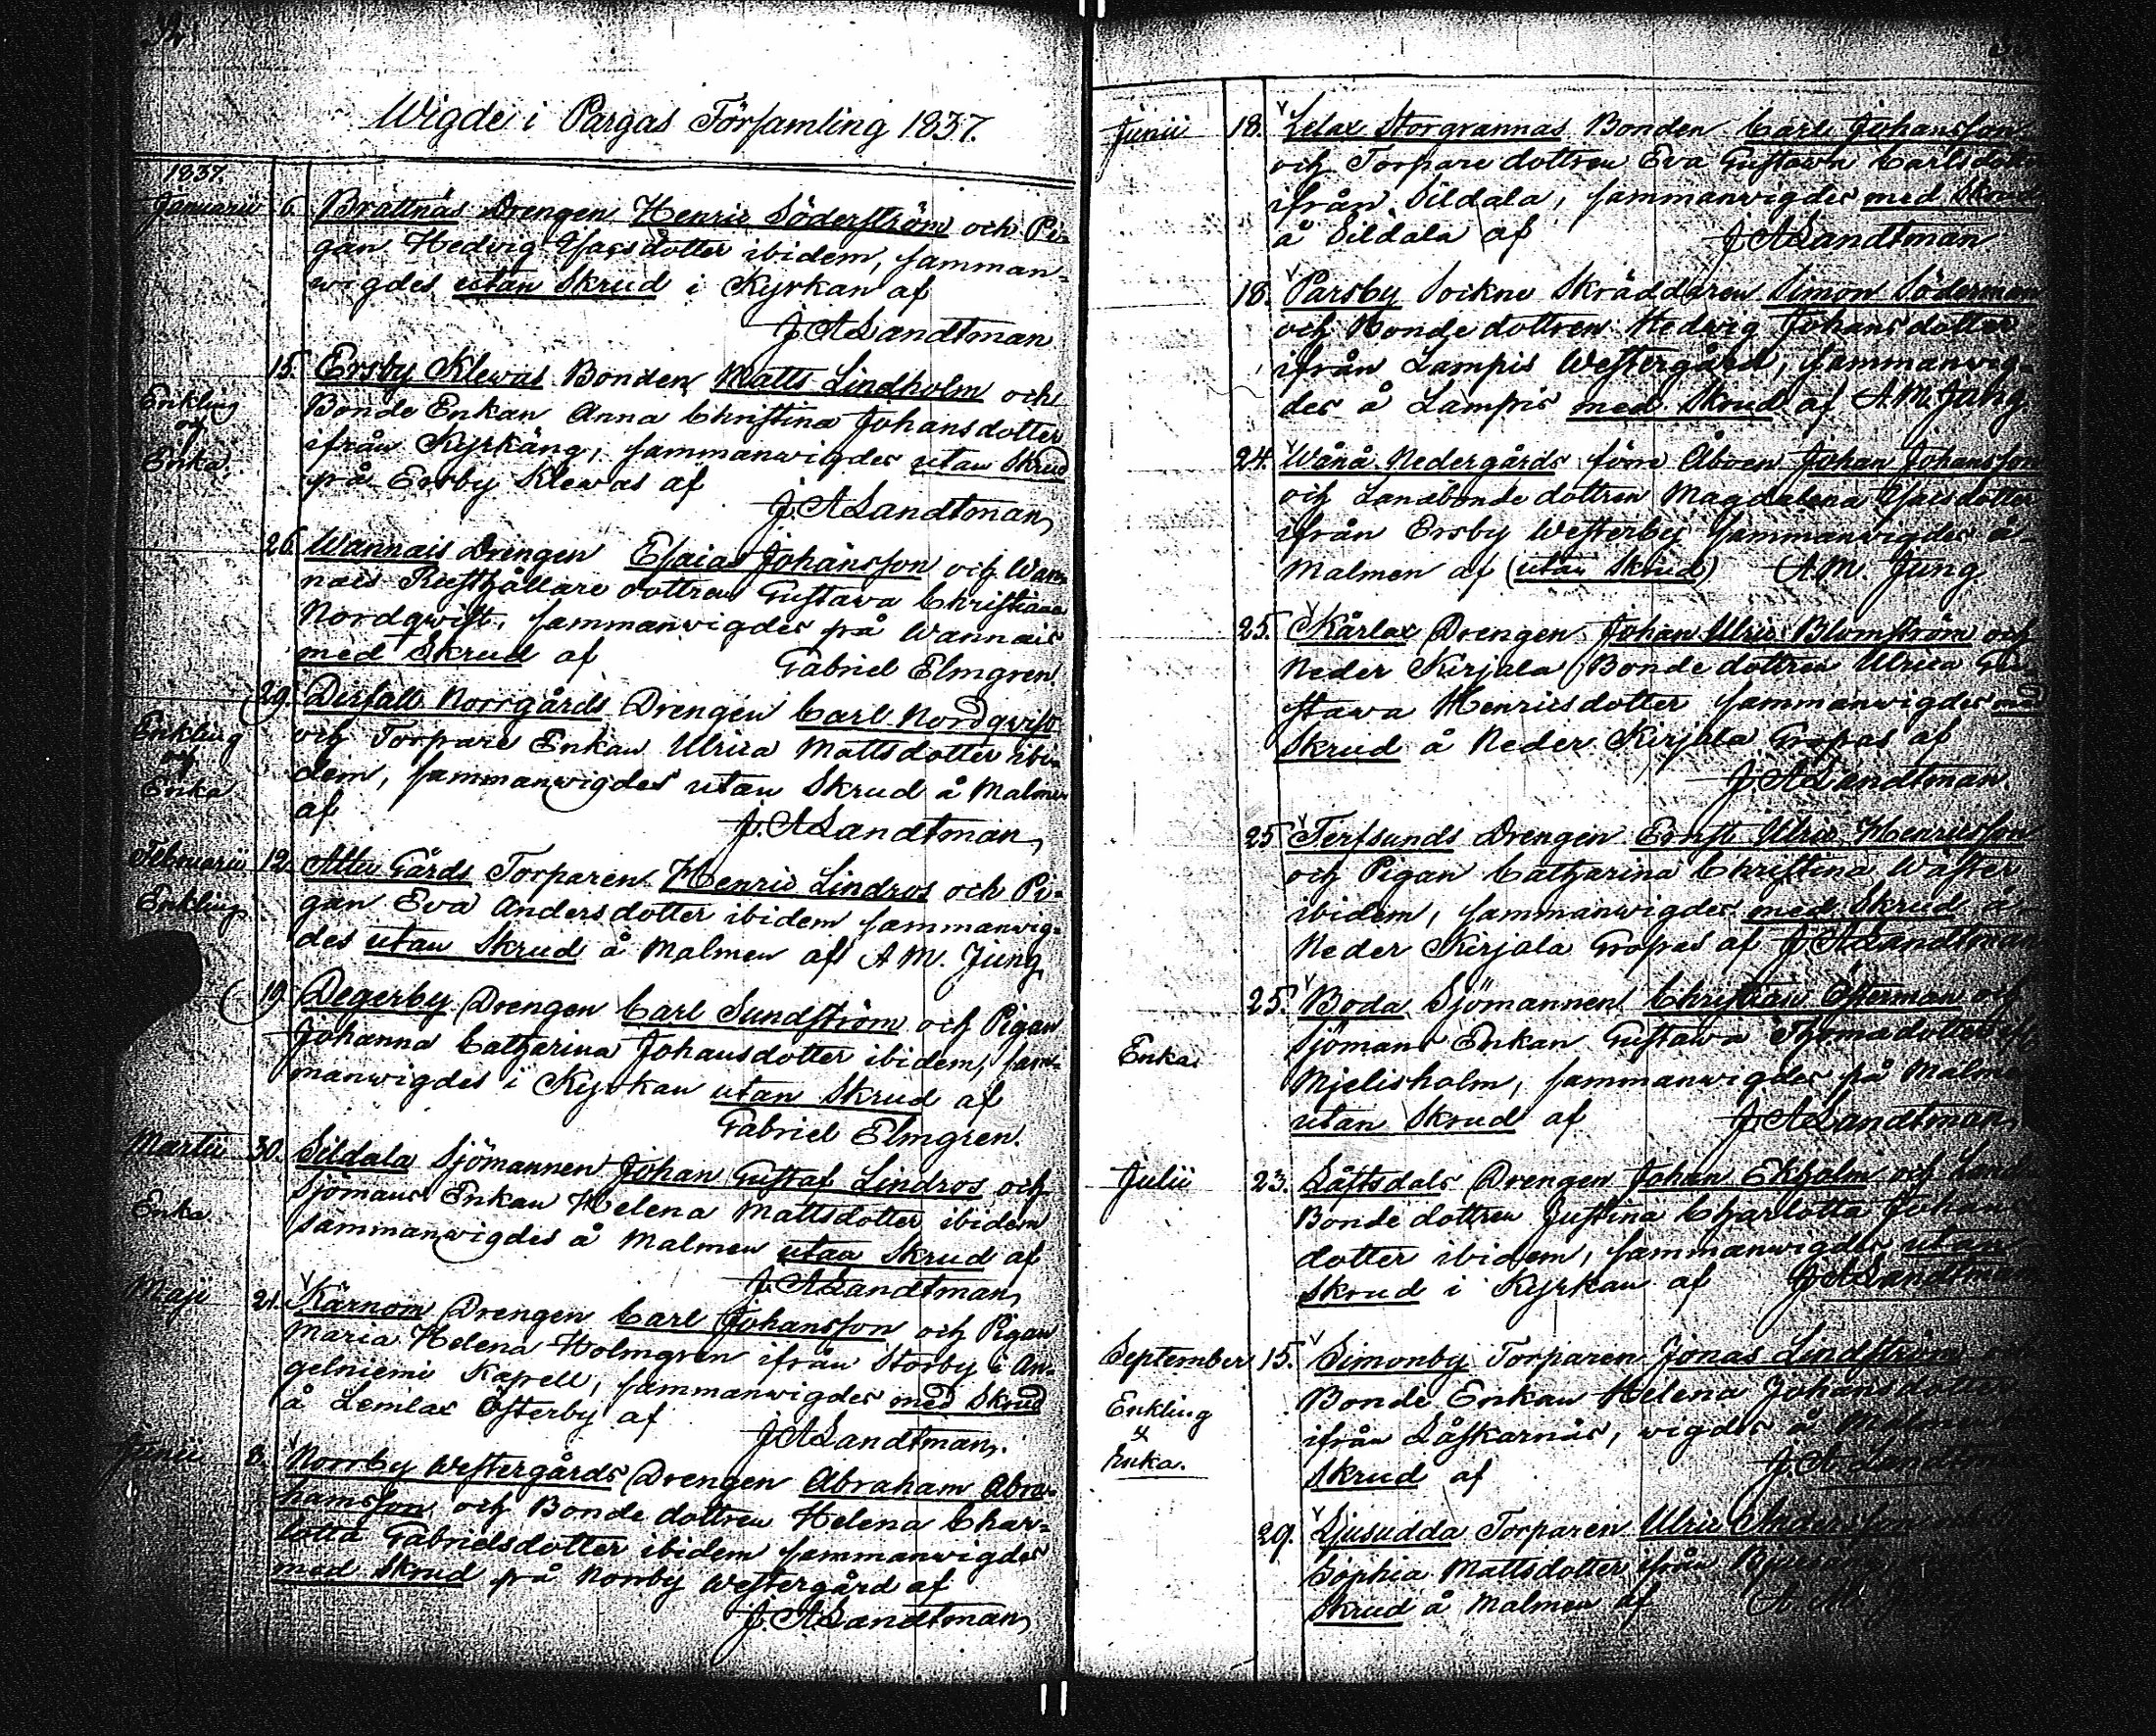 Wigde i Pargas Församling 1837.
1837.
Januarii 6. Brattnäs Drengen Henric Söderström och Pi-
gan Hedvig Esaisdotter ibidem, samman-
wigdes utan Skrud i Kyrkan af
J. A Sandtman
15. Ersby Klewas Bonden Matts Lindholm och
Enkling
Bonde Enkan Anna Christina Johansdotter
och
ifrån Kyrkäng, sammanwigdes utan Skrud
Enka.
på Ersby Klewas af
J. A Sandtman
26. Wannais Drengen Esaias Johansson och Wan-
nais Rusthållare dottren Gustava Christiana
Nordqwist, sammanwigdes på Wannais
med Skrud af Gabriel Elmgren.
29. Dersall Norrgårds Drengen Carl Nordqwist
Enkling
och Torpare Enkan Ulrica Mattsdotter ibi-
och
dem, sammanwigdes utan Skrud å Malmen
Enka
af J. A Sandtman
Februarii 12. Attu Gårds Torparen Henric Lindros och Pi-
Enkling
gan Eva Andersdotter ibidem sammanwig-
des utan Skrud å Malmen af A M. Jung
19. Degerby Drengen Carl Sundström och Pigan
Johanna Catharina Johansdotter ibidem, sam-
manwigdes i Kyrkan utan Skrud af
Gabriel Elmgren.
Martii 30. Sildala Sjömannen Johan Gustaf Lindros och
Enka
Sjömans Enkan Helena Mattsdotter ibidem
sammanwigdes å Malmen utan Skrud af
J. A Sandtman
Maji 21. Kärnom Drengen Carl Johansson och Pigan
Maria Helena Holmgren ifrån Storby i An-
gelniemi Kapell, sammanwigdes med Skrud
å Lemlax Österby af
J A Sandtman.
Junii 8. Norrby Westergårds Drengen Abraham Abra-
hamsson och Bonde dottren Helena Char-
lotta Gabrielsdotter ibidem sammanwigdes
med Skrud på Norrby Westergård af
J. A Sandtman
Junii 18. Lelax Storgrannas Bonden Carl Johansson
och Torpare dottren Eva Gustava Carlsdotter
ifrån Sildala, sammanwigdes med Skrud
å Sildala af J A Sandtman
18. Parsby Sockne Skräddaren Simon Söderman
och Bonde dottren Hedwig Johansdotter
ifrån Lampis Westergård, sammanwig-
des å Lampis med Skrud af A. M. Jung
24. Wånå Nedergårds förre Åboen Johan Johansson
och Landbonde dottren Magdalena Esaisdotter
ifrån Ersby Westerby sammanwigdes å
Malmen af (utan Skrud) A. M. Jung
25. Kårlax Drengen Johan Ulric Blomström och
Neder Kirjala Bonde dottren Ulrica Gu-
stava Henricsdotter sammanwigdes med
Skrud å Neder Kirjala Gropas af
J. A Sandtman.
25 Terfsunds Drengen Ernst Ulric Henricsson
och Pigan Catharina Christina Waster
ibidem, sammanwigdes med Skrud å
Neder Kirjala Gropas af J. A Sandtman
25. Boda Sjömannen Christian Österman och
Enka
Sjömans Enkan Gustawa Thomasdotter
Mjelisholm, sammanwigdes på Malmen
utan Skrud af J A Sandtman
Julii 23. Såftsdals Drengen Johan Ekholm och Land
Bonde dottren Justina Charlotta Johans
dotter ibidem, sammanwigdes utan
Skrud i Kyrkan af J A Sandtman
September 15. Simonby Torparen Jonas Lindström
Enkling
Bonde Enkan Helena Johansdotter
&
ifrån Låskarnäs, wigdes å Malmen
Enka.
Skrud af J. A. Sandtm
29. Ljusudda Torparen Ulric Andersson
Sophia Mattsdotter ifrån
Skrud å Malmen af A. M.